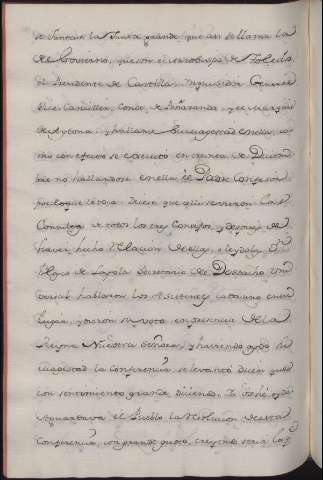 se juntase la Junta grande que asi se llama la
de Govierno, que son el Arzobispo de Toledo,
el Presidente de Castilla, Inquisidor General
Vice Canciller, Conde de Peñaranda, y el Marqués
de Aytona, y hallarse Su Magestad en ella, co
mo con efecto se executó en treinta de Diciem
bre no hallandose en ella el Padre Confesor
por lo que le toca. Dicen que
Consultas de todos los tres Consejos, y despues de
haver hecho Relacion de ellas, y leydolas Dn
Blasco de Loyola Secretario del Despacho Uni
versal hablaron los Asistentes cada uno en su
lugar, y dieron su voto en presencia de la
Reyna Nuestra Señora, y haviendo oydo Su
Magestad la conferencia, se levantó dicen que
con sentimiento grande diciendo: Yo
Aguardava el Pueblo la Resolucion de esta
Conferencia, con grande gusto, creyendo seria la